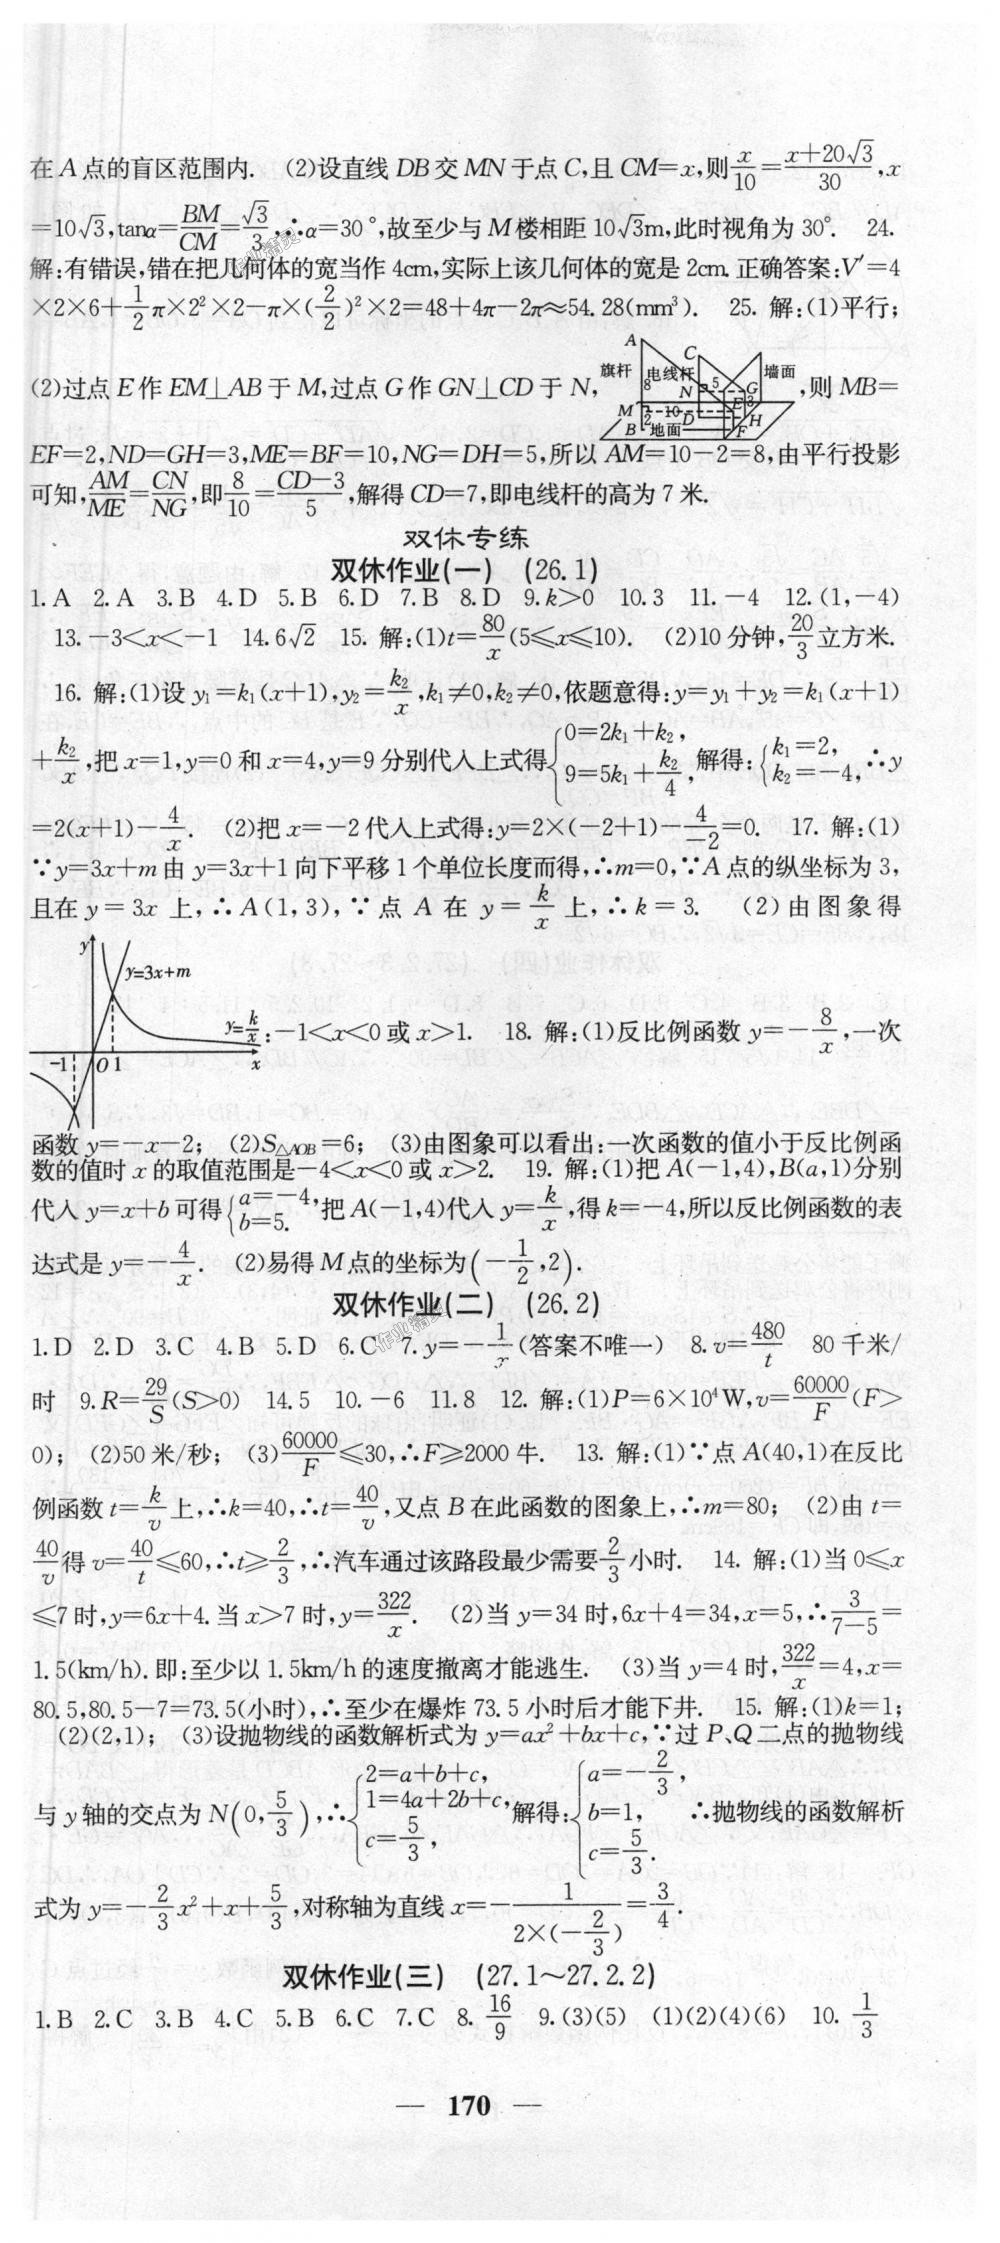 在A点的盲区范围内. (2)设直线DB交MN于点C,且CM=x,则x/10=(x+20√3)/30,x
=10√3,tanα=BM/CM=√3/3,∴α=30°,故至少与M楼相距10√3m,此时视角为30°. 24.
解:有错误,错在把几何体的宽当作4cm,实际上该几何体的宽是2cm.正确答案:V′=4
×2×6+1/2π×2²×2-π×(2/2)²×2=48+4π-2π≈54.28(mm³). 25. 解:(1)平行;
(2)过点E作EM⊥AB于M,过点G作GN⊥CD于N, ,则MB=
A C 旗杆 电线杆 墙面 8 N 5 G M 10 E 3 2 D H B 地面 F
EF=2,ND=GH=3,ME=BF=10,NG=DH=5,所以AM=10-2=8,由平行投影
可知,AM/ME=CN/NG,即8/10=(CD-3)/5,解得CD=7,即电线杆的高为7米.
双休专练
双休作业(一) (26.1)
1.A 2.A 3.B 4.D 5.B 6.D 7.B 8.D 9.k>0 10.3 11.-4 12.(1,-4)
13.-3<x<-1 14.6√2 15. 解:(1)t=80/x(5≤x≤10). (2)10分钟,20/3立方米.
16. 解:(1)设y₁=k₁(x+1),y₂=k₂/x,k₁≠0,k₂≠0,依题意得:y=y₁+y₂=k₁(x+1)
+k₂/x,把x=1,y=0和x=4,y=9分别代入上式得{0=2k₁+k₂, 9=5k₁+k₂/4, 解得:{k₁=2, k₂=-4, ∴y
=2(x+1)-4/x. (2)把x=-2代入上式得:y=2×(-2+1)-4/-2=0. 17. 解:(1)
∵y=3x+m由y=3x+1向下平移1个单位长度而得,∴m=0,∵A点的纵坐标为3,
且在y=3x上,∴A(1,3),∵点A在y=k/x上,∴k=3. (2)由图象得
y y=3x+m y=k/x -1 O 1 x
:-1<x<0或x>1. 18. 解:(1)反比例函数y=-8/x,一次
函数y=-x-2; (2)S△AOB=6; (3)由图象可以看出:一次函数的值小于反比例函
数的值时x的取值范围是-4<x<0或x>2. 19. 解:(1)把A(-1,4),B(a,1)分别
代入y=x+b可得{a=-4, b=5. 把A(-1,4)代入y=k/x,得k=-4,所以反比例函数的表
达式是y=-4/x. (2)易得M点的坐标为(-1/2,2).
双休作业(二) (26.2)
1.D 2.D 3.C 4.B 5.D 6.C 7.y=-1/x(答案不唯一) 8.v=480/t 80千米/
时 9.R=29/S(S>0) 14.5 10.-6 11.8 12. 解:(1)P=6×10⁴W,v=60000/F(F>
0); (2)50米/秒; (3)60000/F≤30,∴F≥2000牛. 13. 解:(1)∵点A(40,1)在反比
例函数t=k/v上,∴k=40,∴t=40/v,又点B在此函数的图象上,∴m=80; (2)由t=
40/v得v=40/t≤60,∴t≥2/3,∴汽车通过该路段最少需要2/3小时. 14. 解:(1)当0≤x
≤7时,y=6x+4.当x>7时,y=322/x. (2)当y=34时,6x+4=34,x=5,∴3/(7-5)=
1.5(km/h).即:至少以1.5km/h的速度撤离才能逃生. (3)当y=4时,322/x=4,x=
80.5,80.5-7=73.5(小时),∴至少在爆炸73.5小时后才能下井. 15. 解:(1)k=1;
(2)(2,1); (3)设抛物线的函数解析式为y=ax²+bx+c,∵过P、Q二点的抛物线
与y轴的交点为N(0,5/3),∴{2=a+b+c, 1=4a+2b+c, c=5/3, 解得:{a=-2/3, b=1, c=5/3. ∴抛物线的函数解析
式为y=-2/3x²+x+5/3,对称轴为直线x=-1/(2×(-2/3))=3/4.
双休作业(三) (27.1~27.2.2)
1.B 2.C 3.B 4.C 5.B 6.C 7.C 8.16/9 9.(3)(5) (1)(2)(4)(6) 10.1/3
— 170 —